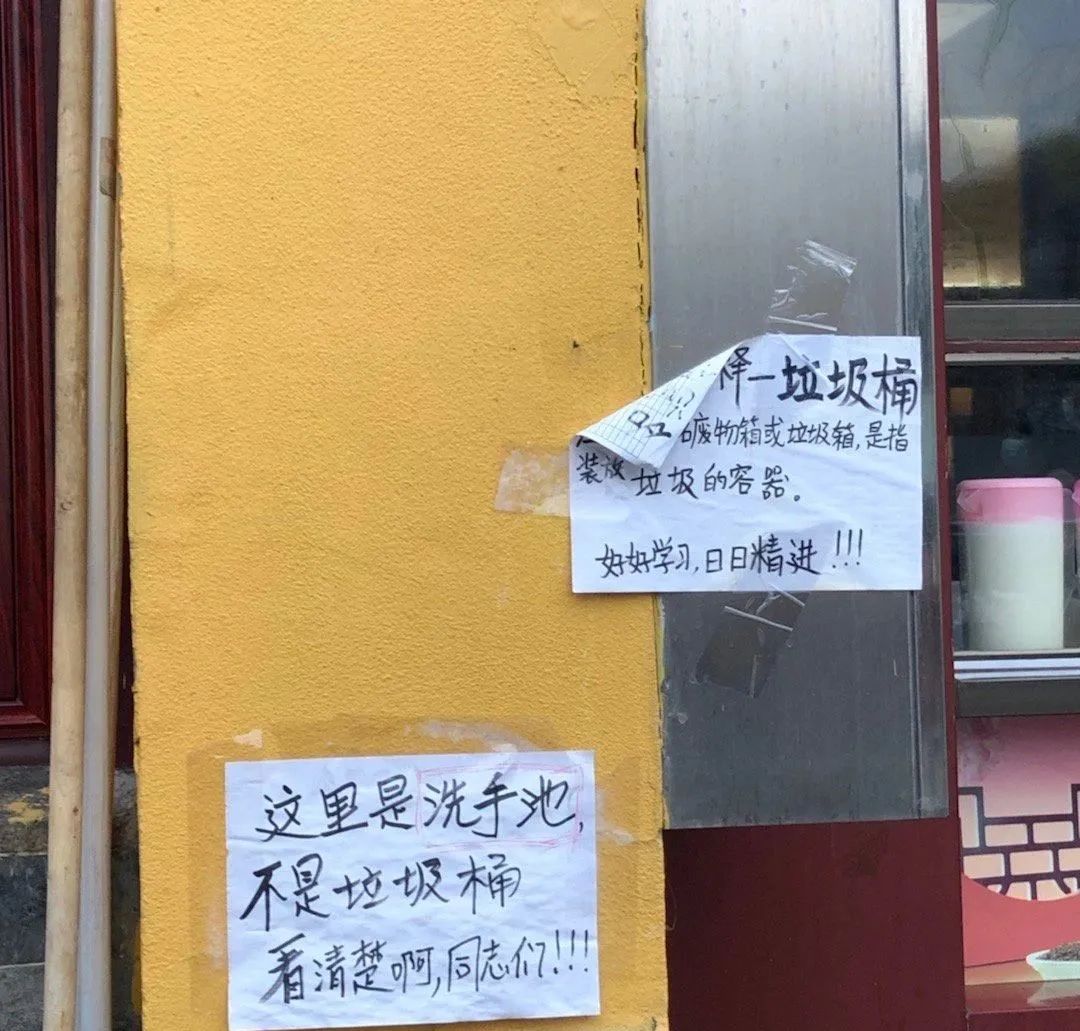 释一垃圾桶
废物箱或垃圾箱,是指
装放垃圾的容器。
好好学习,日日精进!!!
这里是洗手池,
不是垃圾桶
看清楚啊,同志们!!!